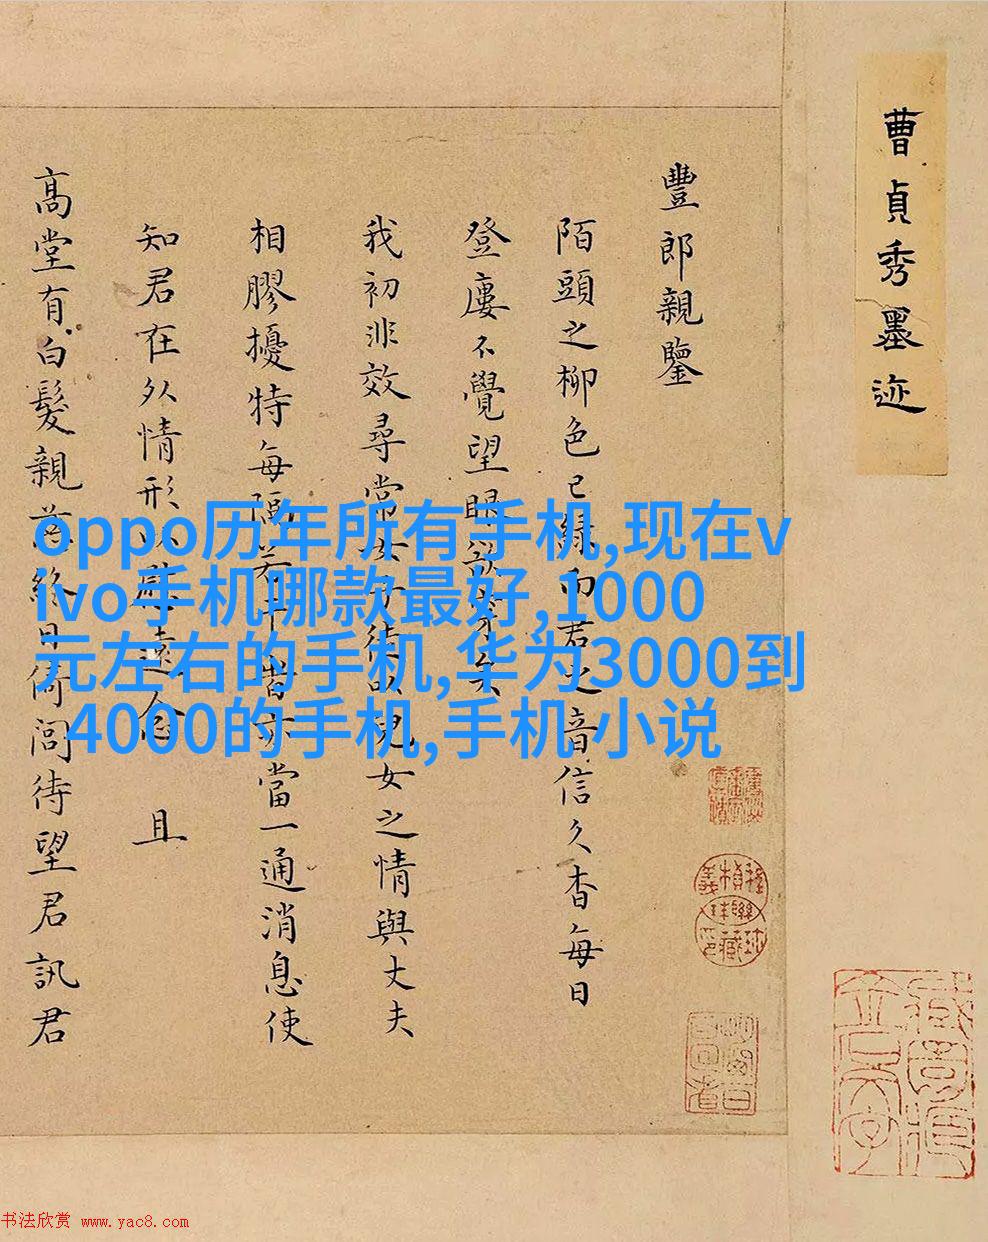 曹貞秀墨迹
豐郎親鑒
陌頭之柳色已綠而君之音信久杳每日
登廔不覺望眼欲穿矣
我初非效尋常女子徒以兒女之情與丈夫
相膠擾特每隔若干旹亦當一通消息使
知君在外情形以慰遠念 且
髙堂有白髮親慈終日倚閭待望君訊君
oppo历年所有手机,现在v
ivo手机哪款最好,1000
元左右的手机,华为3000到
4000的手机,手机 小说
书法欣赏 www.yac8.com